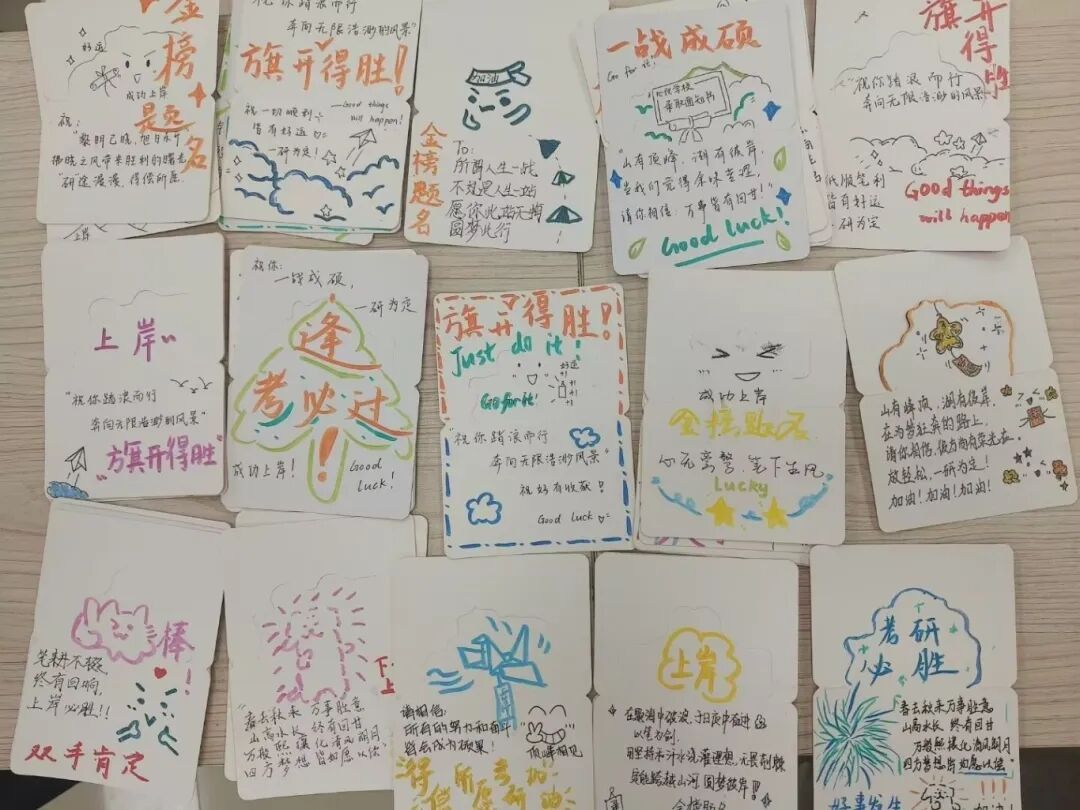 金
榜
题
名
好运
成功上岸
祝:
"黎明已晓,旭日东升
携晓之风带来胜利的曙光
"研途漫漫,得偿所愿
祝你踏浪而行
奔向无限浩渺的风景"
旗开得胜!
祝一切顺利
皆有好运
一研为定!
Good things
will happen!
加油
金榜题名
To:
所谓人生一站
不过是人生一站
圆梦此行
一战成硕
Go for it!
录取通知书
"山有顶峰,湖有彼岸,
当我们觉得余味苦涩,
请你相信,万事皆有回甘!"
Good Luck!
旗开
得胜
"祝你踏浪而行
奔向无限浩渺的风景
皆有好运
一研为定
Good things
will happen
上岸
"祝你踏浪而行
奔向无限浩渺的风景"
"旗开得胜"
祝你:
一战成硕,
一研为定
逢
考必过
!
成功上岸!
Good
Luck!
旗开得胜!
Just do it!
好运
+1
+1
+1
Go for it!
"祝你踏浪而行
奔向无限浩渺的风景"
祝好有收获!
Good Luck
成功上岸
金榜题名
心无旁骛,笔下生风
Lucky
山有峰顶,湖有彼岸,
在为梦狂奔的路上,
请你相信,彼方尚有荣光在。
放轻松,一研为定!
加油!加油!加油!
棒
!
笔耕不辍,
终有回响,
上岸必胜!!
双手肯定
"春去秋来 万事胜意
山高水长 终有回甘
万般熙攘化清风朗月
四方梦想皆如愿以偿"
下
上
请相信:
所有的努力和奋斗
都会成为硕果!
顶峰相见
得偿所愿
考研加油
上岸
以笔为剑,
圆梦彼岸!!!
金榜题名
考研
必胜
春去秋来 万事胜意
山高水长 终有回甘
万般熙攘化清风朗月
四方梦想皆如愿以偿
好事发生
加油